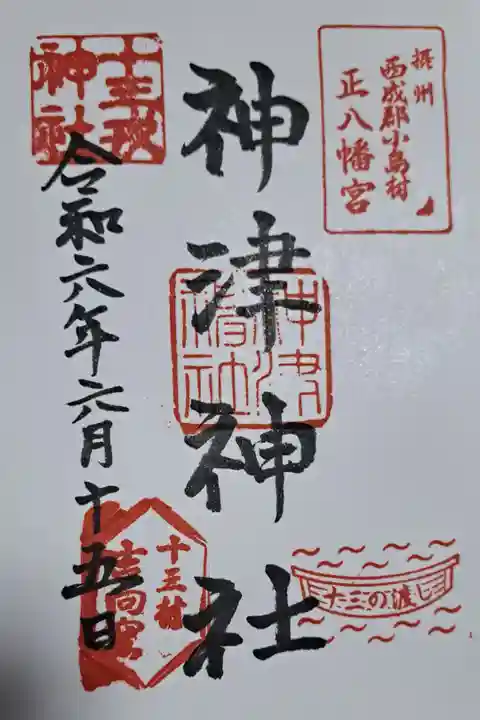 摂州
西成郡小島村
正八幡宮
神津神社
神津神社
十三の渡し
十三戎神社
令和六年六月十五日
十三村